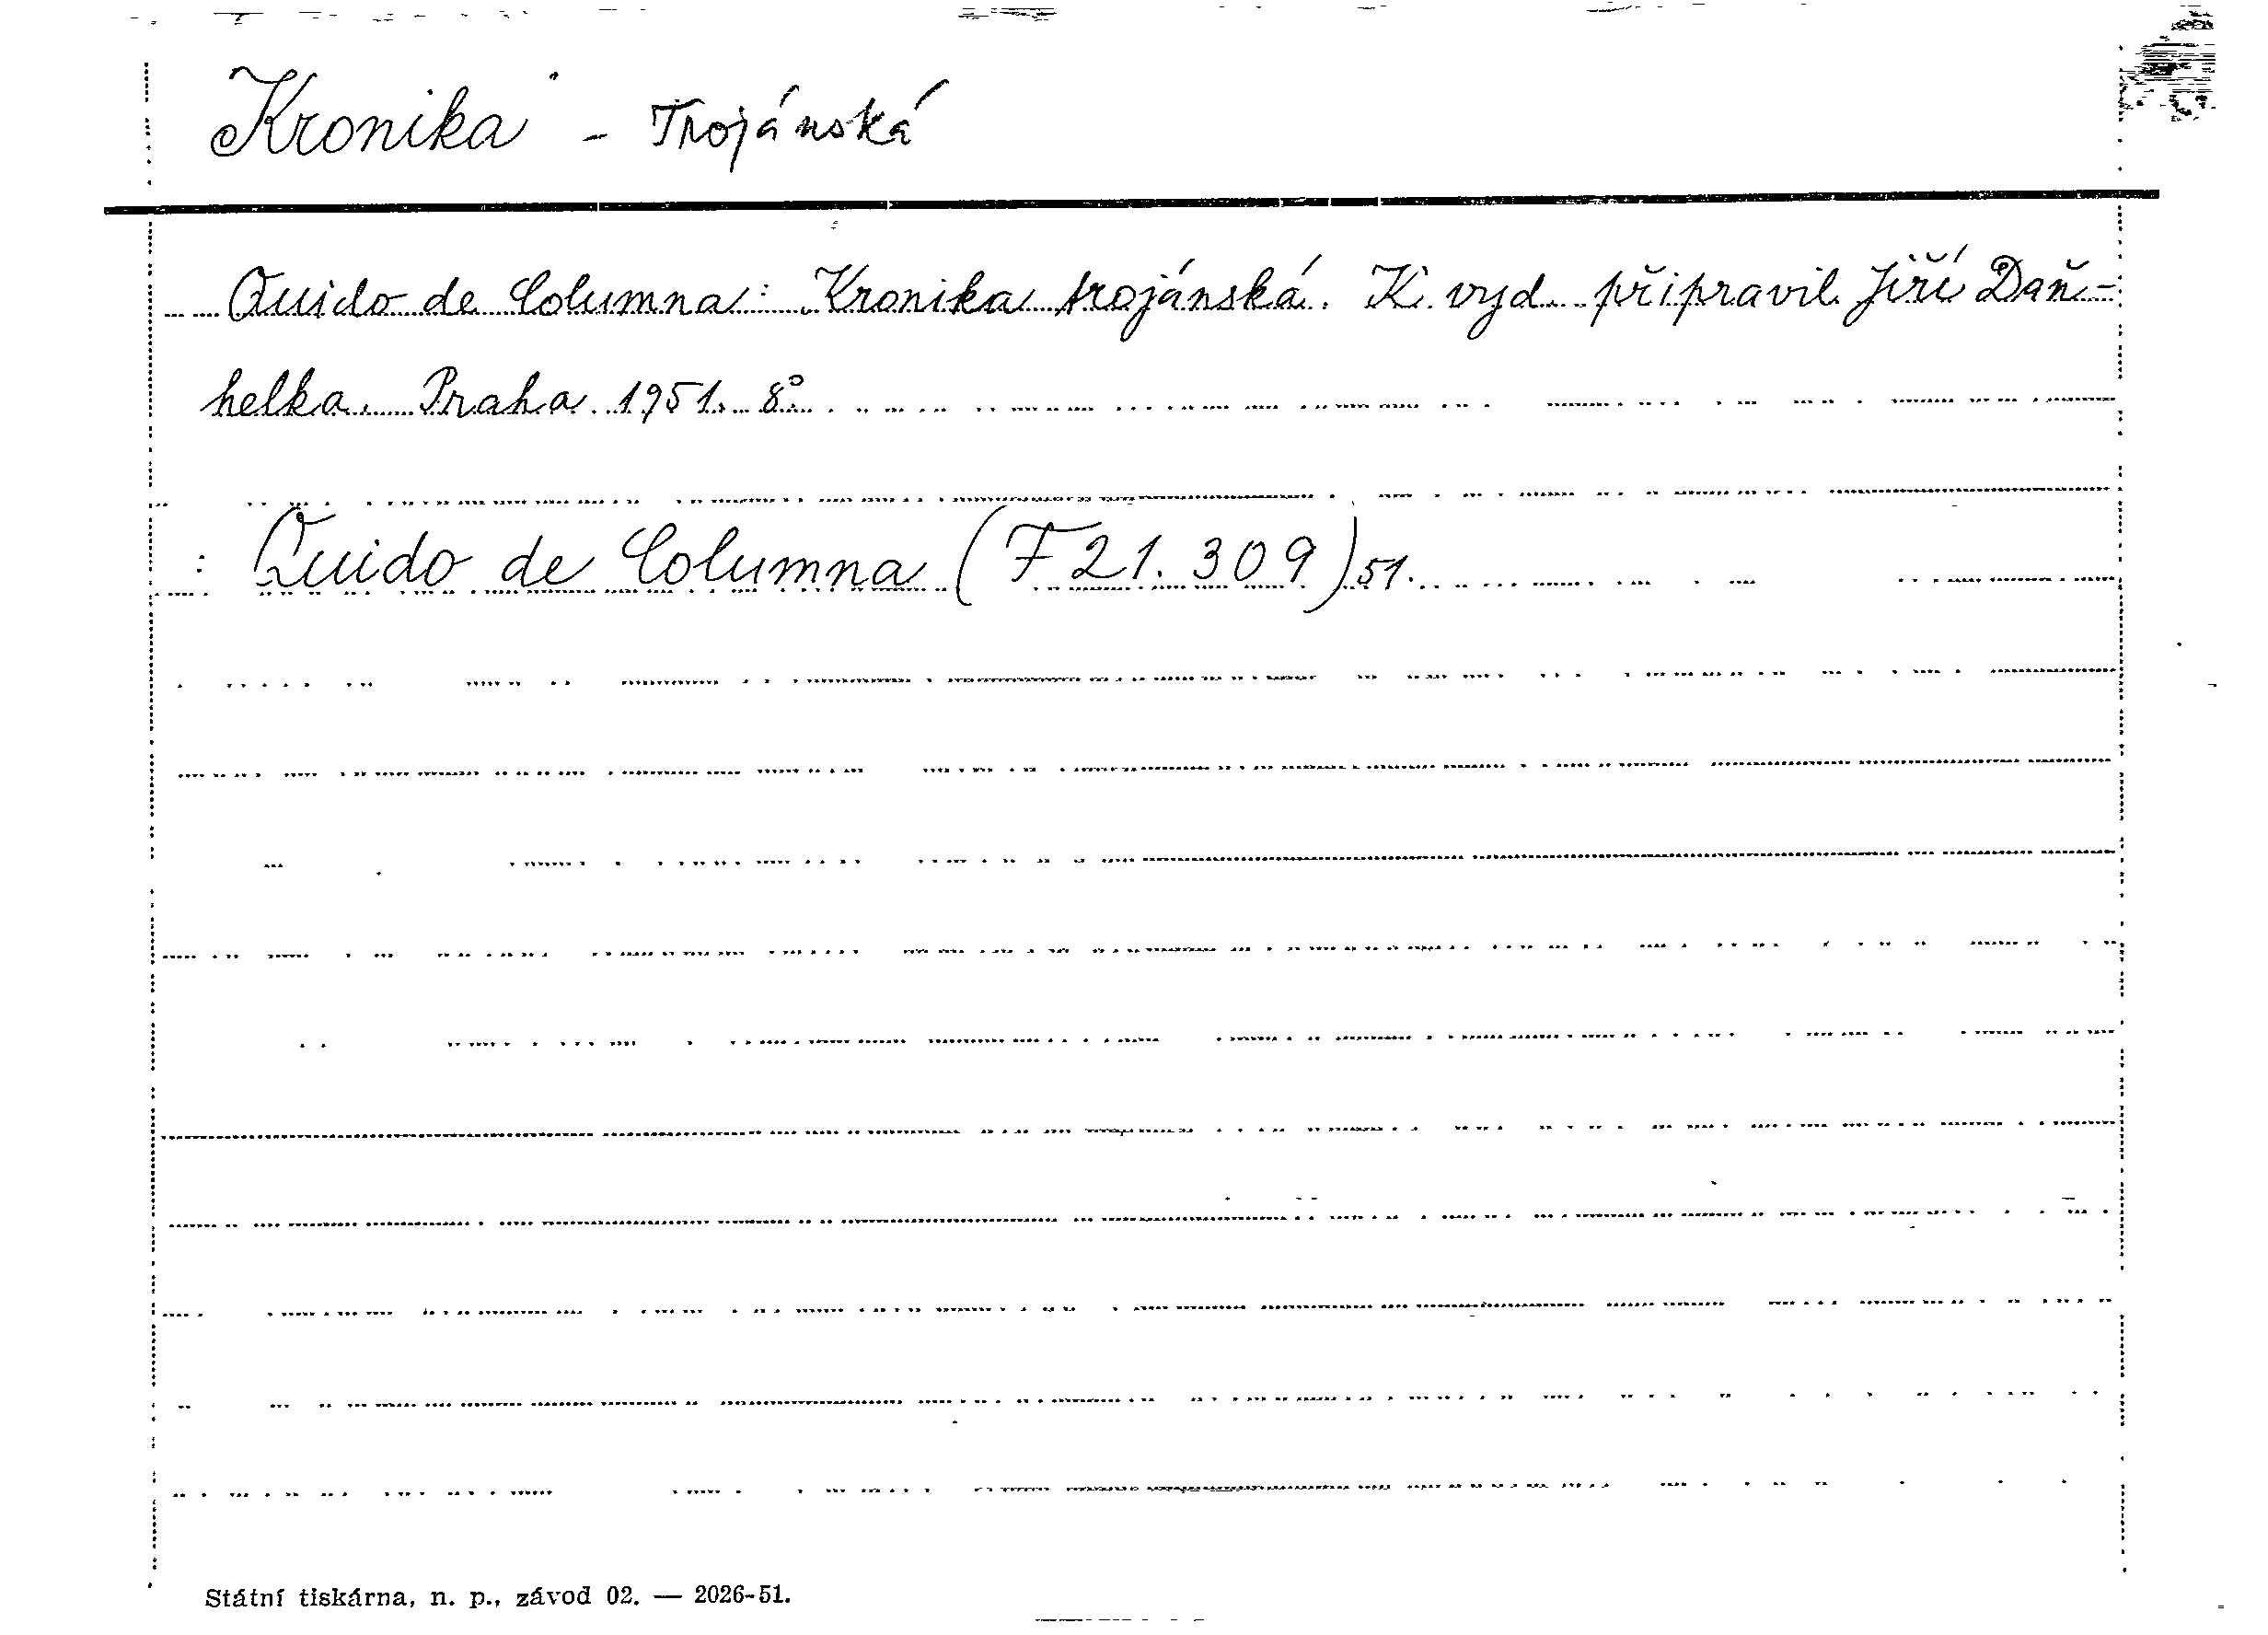 Kronika - Trojánská
Quido de Columna: Kronika trojánská. K vyd. připravil Jiří Daň-
helka. Praha 1951. 8°.
: Quido de Columna (F 21.309) 51.
Státní tiskárna, n. p., závod 02. — 2026-51.